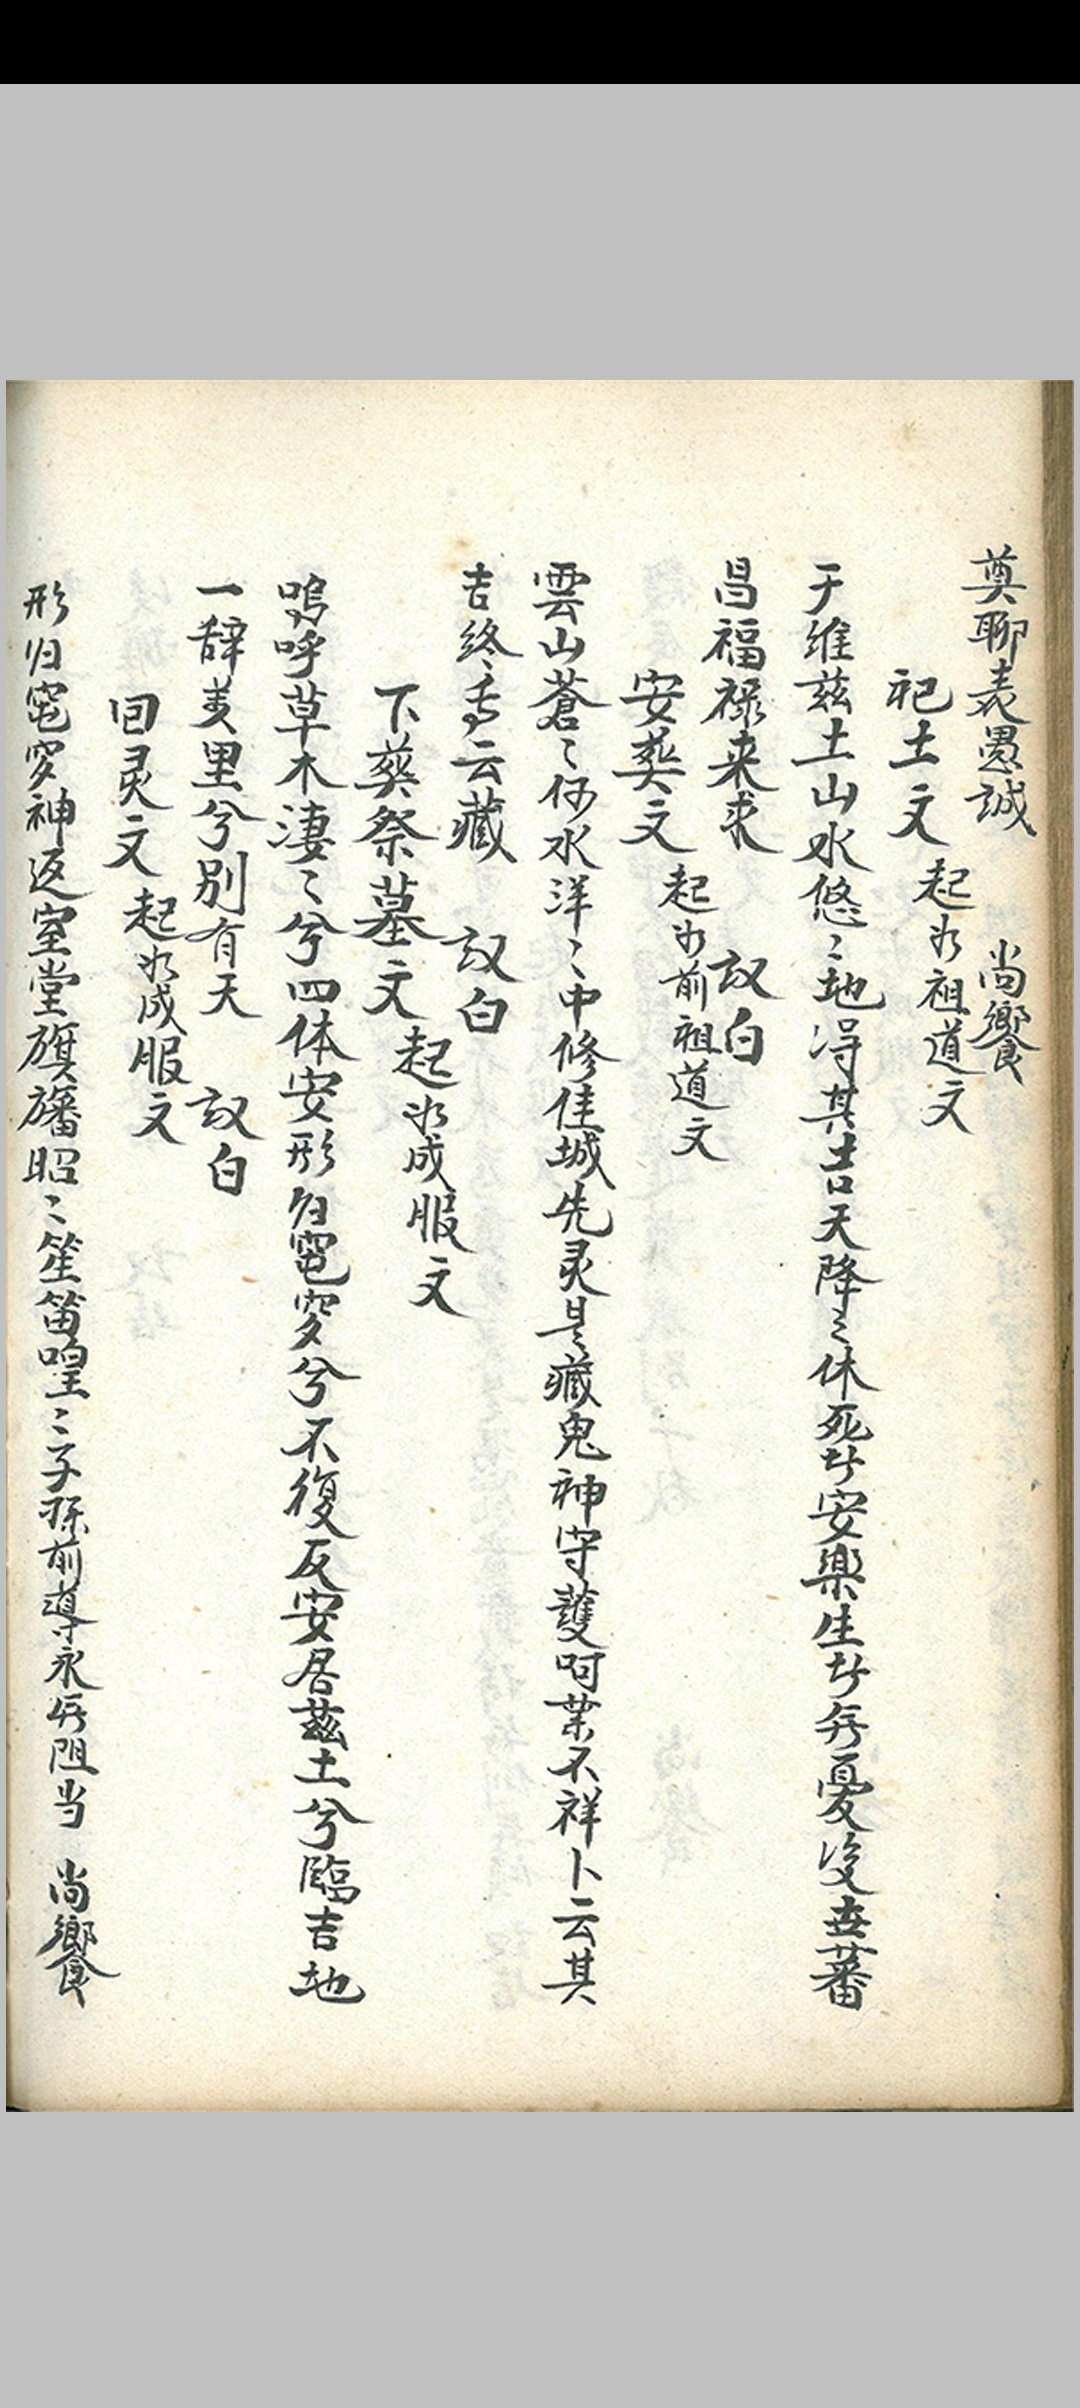 奠聊表愚誠　尚饗
祀土文　起如祖道文
于維茲土山水悠〻地得其吉天降之休死者安樂生者旡憂後世蕃
昌福祿来求　敢白
安葬文　起如前祖道文
雲山蒼〻何水洋〻中修佳城先灵是藏鬼神守護呵禁不祥卜云其
吉終焉云藏　敢白
下葬祭墓文　起如成服文
嗚呼草木淒〻兮四体安形归窀穸兮不復反安居茲土兮臨吉地
一辞美里兮別有天　敢白
回灵文　起如成服文
形归窀穸神返室堂旗旛昭〻笙笛喤〻子孫前導永旡阻当　尚饗